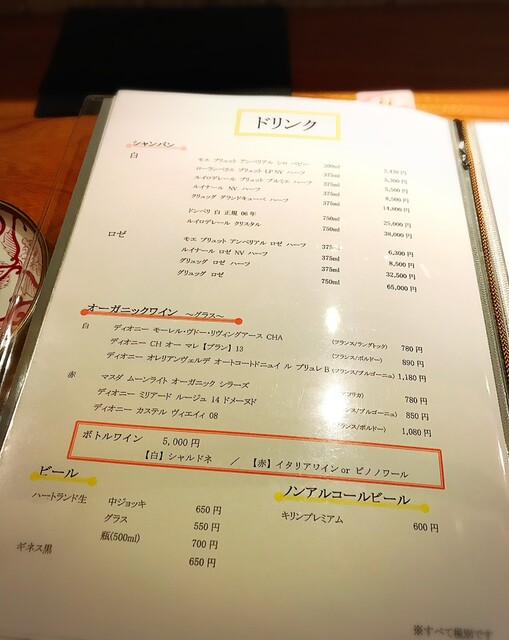 ドリンク
シャンパン
白 モエ ブリュット アンペリアル シロ ベビー 200ml
ローランペリエ ブリュット LP NV ハーフ 375ml 5,300円
ルイロデレール ブリュット プルミエ ハーフ 375ml 5,500円
ルイナール NV ハーフ 375ml 8,500円
クリュッグ グランドキューベ ハーフ 375ml 14,800円
ドンペリ 白 正規 06年 750ml 25,000円
ルイロデレール クリスタル 750ml 38,000円
ロゼ モエ ブリュット アンペリアル ロゼ ハーフ 375ml 6,300円
ルイナール ロゼ NV ハーフ 375ml 8,500円
グリュッグ ロゼ ハーフ 375ml 32,500円
グリュッグ ロゼ 750ml 65,000円
オーガニックワイン ～グラス～
白 ディオニー モーレル・ヴドー・リヴィングアース CHA (フランス/ラングドック) 780円
ディオニー CH オー マレ【ブラン】13 (フランス/ボルドー) 890円
ディオニー オレリアンヴェルデ オートコードニュイ ル プリュレ B (フランス/ブルゴーニュ) 1,180円
赤 マスダ ムーンライト オーガニック シラーズ 780円
ディオニー ミリアード ルージュ 14 ドメーヌド (フランス/ブルゴーニュ) 850円
ディオニー カステル ヴィエイイ 08 (フランス/ボルドー) 1,080円
ボトルワイン 5,000円
【白】シャルドネ ／ 【赤】イタリアワイン or ピノノワール
ビール
ハートランド生 中ジョッキ 650円
グラス 550円
瓶(500ml) 700円
ギネス黒 650円
ノンアルコールビール
キリンプレミアム 600円
※すべて税別です